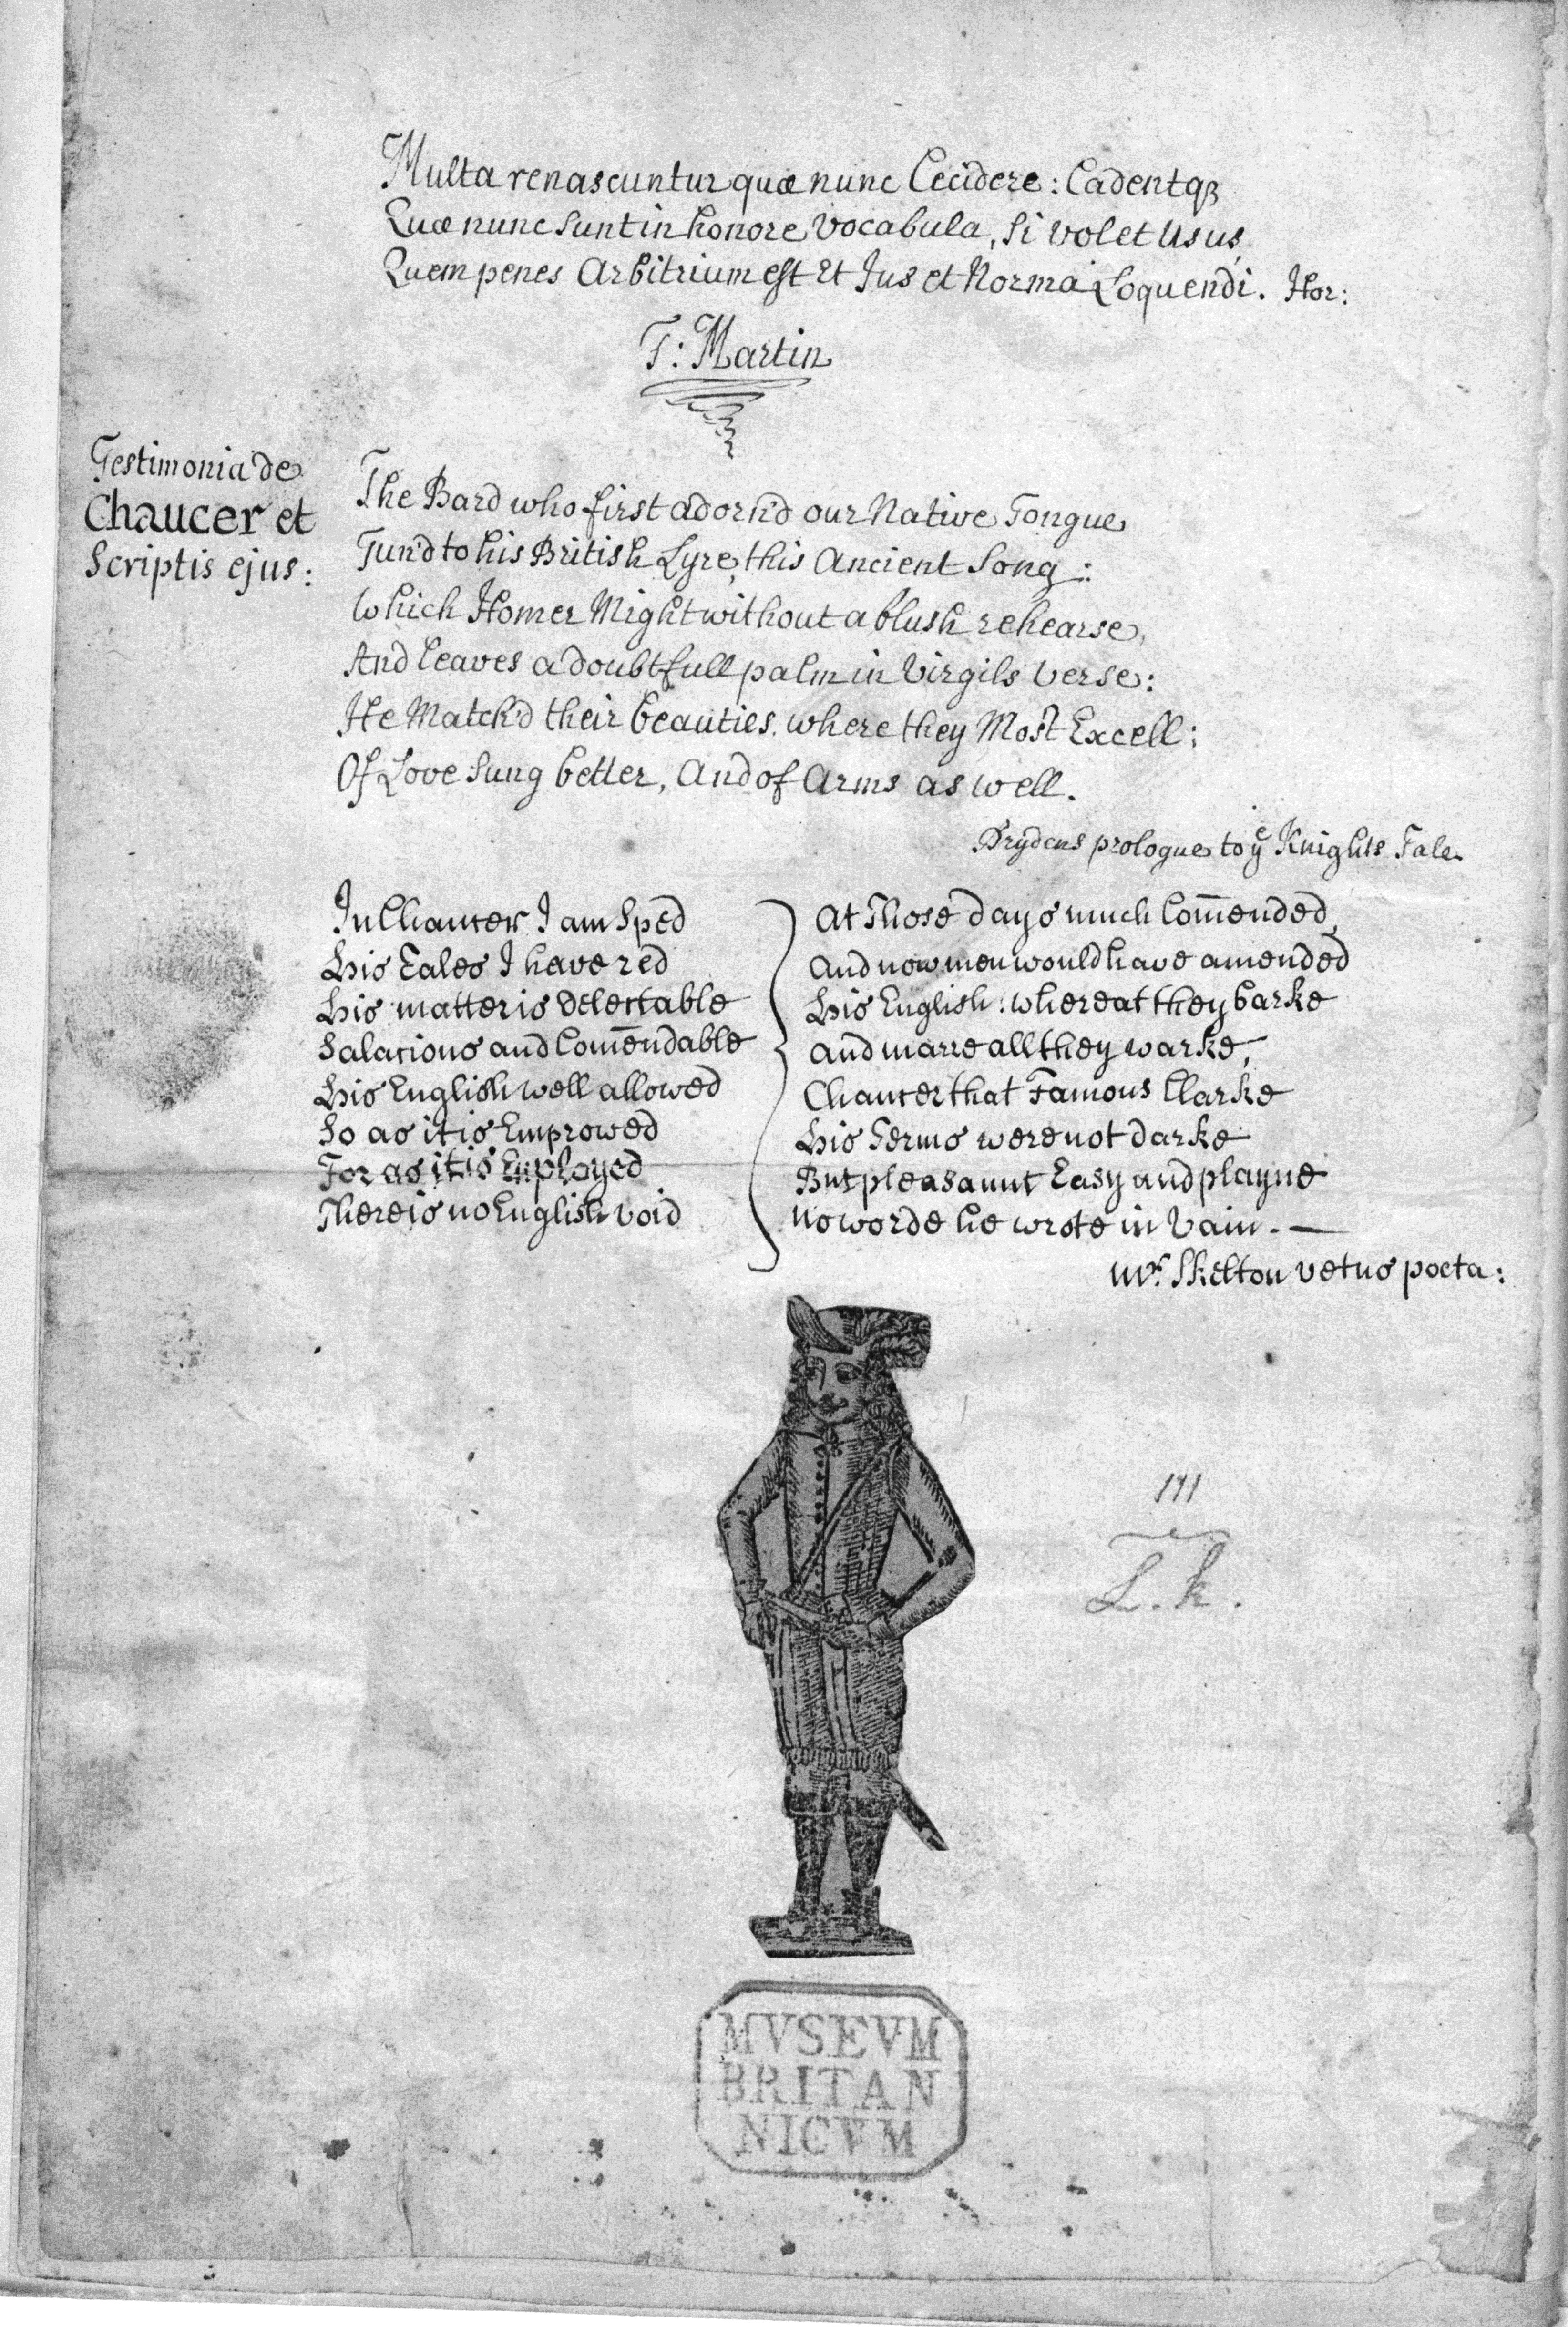 Multa renascuntur quæ nunc Cecidere: Cadentqꝫ
Quæ nunc sunt in honore Vocabula, Si volet Usus
Quem penes Arbitrium est Et Jus et Norma Loquendi. Hor:
T: Martin
Testimonia de
Chaucer et
Scriptis ejus:
The Bard who first adorn'd our Native Tongue
Tun'd to his British Lyre, this Ancient Song:
Which Homer Might without a blush rehearse,
And leaves a doubtfull palm in Virgils verse:
He Match'd their beauties, where they Most Excell;
Of Love sung better, And of Arms as well.
Drydens prologue to yᵉ Knights Tale.
In Chaucer I am Sped
His Tales I have red
His matter is Delectable
Salacious and Com̄endable
His English well allowed
So as it is Emprowed
For as it is Employed
There is no English void
At Those days much Com̄ended,
And now men would have amended
His English: whereat they barke
And marre all they warke,
Chaucer that Famous Clarke
His Terms were not darke
But pleasaunt Easy and playne
No worde he wrote in Vain. —
Mʳ. Skelton vetus poeta:
111
L. k.
MVSEVM
BRITAN
NICVM